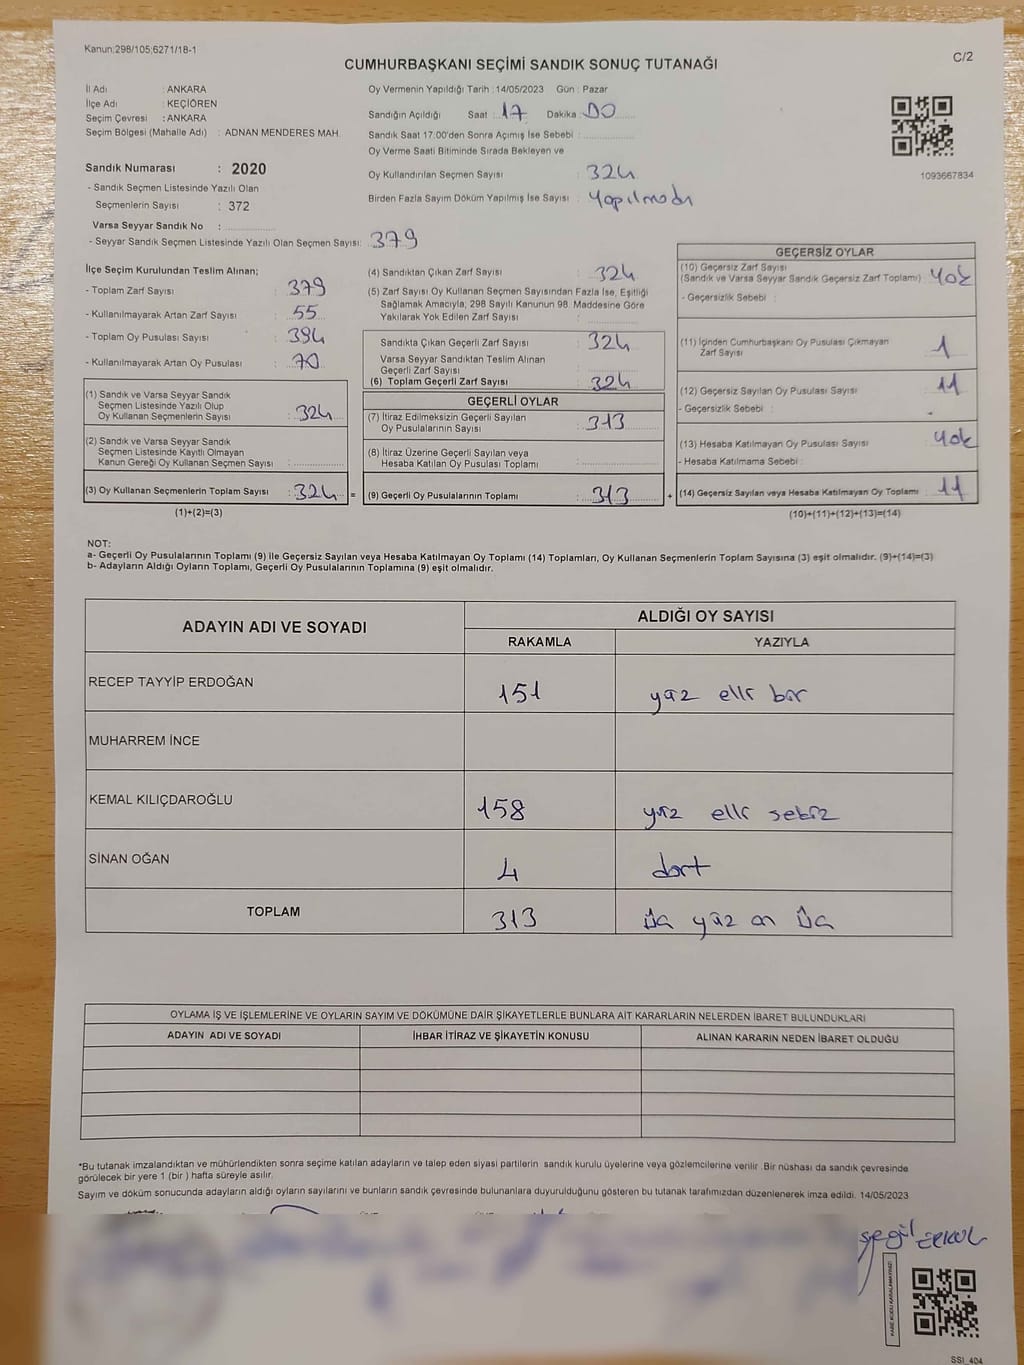 Kanun:298/105;6271/18-1
C/2
CUMHURBAŞKANI SEÇİMİ SANDIK SONUÇ TUTANAĞI
İl Adı : ANKARA
İlçe Adı : KEÇİÖREN
Seçim Çevresi : ANKARA
Seçim Bölgesi (Mahalle Adı) : ADNAN MENDERES MAH.
Sandık Numarası : 2020
- Sandık Seçmen Listesinde Yazılı Olan
Seçmenlerin Sayısı : 372
Varsa Seyyar Sandık No :
- Seyyar Sandık Seçmen Listesinde Yazılı Olan Seçmen Sayısı: 379
Oy Vermenin Yapıldığı Tarih : 14/05/2023 Gün : Pazar
Sandığın Açıldığı Saat : 17 Dakika : 00
Sandık Saat 17:00'den Sonra Açımış İse Sebebi :
Oy Verme Saati Bitiminde Sırada Bekleyen ve
Oy Kullandırılan Seçmen Sayısı : 324
Birden Fazla Sayım Döküm Yapılmış İse Sayısı : Yapılmadı
1093667834
İlçe Seçim Kurulundan Teslim Alınan;
- Toplam Zarf Sayısı : 379
- Kullanılmayarak Artan Zarf Sayısı : 55
- Toplam Oy Pusulası Sayısı : 394
- Kullanılmayarak Artan Oy Pusulası : 70
(1) Sandık ve Varsa Seyyar Sandık
Seçmen Listesinde Yazılı Olup
Oy Kullanan Seçmenlerin Sayısı : 324
(2) Sandık ve Varsa Seyyar Sandık
Seçmen Listesinde Kayıtlı Olmayan
Kanun Gereği Oy Kullanan Seçmen Sayısı :
(3) Oy Kullanan Seçmenlerin Toplam Sayısı : 324 =
(1)+(2)=(3)
(4) Sandıktan Çıkan Zarf Sayısı : 324
(5) Zarf Sayısı Oy Kullanan Seçmen Sayısından Fazla İse, Eşitliği
Sağlamak Amacıyla, 298 Sayılı Kanunun 98. Maddesine Göre
Yakılarak Yok Edilen Zarf Sayısı :
Sandıkta Çıkan Geçerli Zarf Sayısı : 324
Varsa Seyyar Sandıktan Teslim Alınan
Geçerli Zarf Sayısı :
(6) Toplam Geçerli Zarf Sayısı : 324
GEÇERLİ OYLAR
(7) İtiraz Edilmeksizin Geçerli Sayılan
Oy Pusulalarının Sayısı : 313
(8) İtiraz Üzerine Geçerli Sayılan veya
Hesaba Katılan Oy Pusulası Toplamı :
(9) Geçerli Oy Pusulalarının Toplamı : 313 +
GEÇERSİZ OYLAR
(10) Geçersiz Zarf Sayısı
(Sandık ve Varsa Seyyar Sandık Geçersiz Zarf Toplamı) : Yok
- Geçersizlik Sebebi :
(11) İçinden Cumhurbaşkanı Oy Pusulası Çıkmayan
Zarf Sayısı : 1
(12) Geçersiz Sayılan Oy Pusulası Sayısı : 11
- Geçersizlik Sebebi :
(13) Hesaba Katılmayan Oy Pusulası Sayısı : Yok
- Hesaba Katılmama Sebebi :
(14) Geçersiz Sayılan veya Hesaba Katılmayan Oy Toplamı : 11
(10)+(11)+(12)+(13)=(14)
NOT:
a- Geçerli Oy Pusulalarının Toplamı (9) ile Geçersiz Sayılan veya Hesaba Katılmayan Oy Toplamı (14) Toplamları, Oy Kullanan Seçmenlerin Toplam Sayısına (3) eşit olmalıdır. (9)+(14)=(3)
b- Adayların Aldığı Oyların Toplamı, Geçerli Oy Pusulalarının Toplamına (9) eşit olmalıdır.
ADAYIN ADI VE SOYADI
ALDIĞI OY SAYISI
RAKAMLA YAZIYLA
RECEP TAYYİP ERDOĞAN 151 yüz elli bir
MUHARREM İNCE
KEMAL KILIÇDAROĞLU 158 yüz elli sekiz
SİNAN OĞAN 4 dört
TOPLAM 313 üç yüz on üç
OYLAMA İŞ VE İŞLEMLERİNE VE OYLARIN SAYIM VE DÖKÜMÜNE DAİR ŞİKAYETLERLE BUNLARA AİT KARARLARIN NELERDEN İBARET BULUNDUKLARI
ADAYIN ADI VE SOYADI İHBAR İTİRAZ VE ŞİKAYETİN KONUSU ALINAN KARARIN NEDEN İBARET OLDUĞU
*Bu tutanak imzalandıktan ve mühürlendikten sonra seçime katılan adayların ve talep eden siyasi partilerin sandık kurulu üyelerine veya gözlemcilerine verilir. Bir nüshası da sandık çevresinde
görülecek bir yere 1 (bir ) hafta süreyle asılır.
Sayım ve döküm sonucunda adayların aldığı oyların sayılarını ve bunların sandık çevresinde bulunanlara duyurulduğunu gösteren bu tutanak tarafımızdan düzenlenerek imza edildi. 14/05/2023
SSI_404